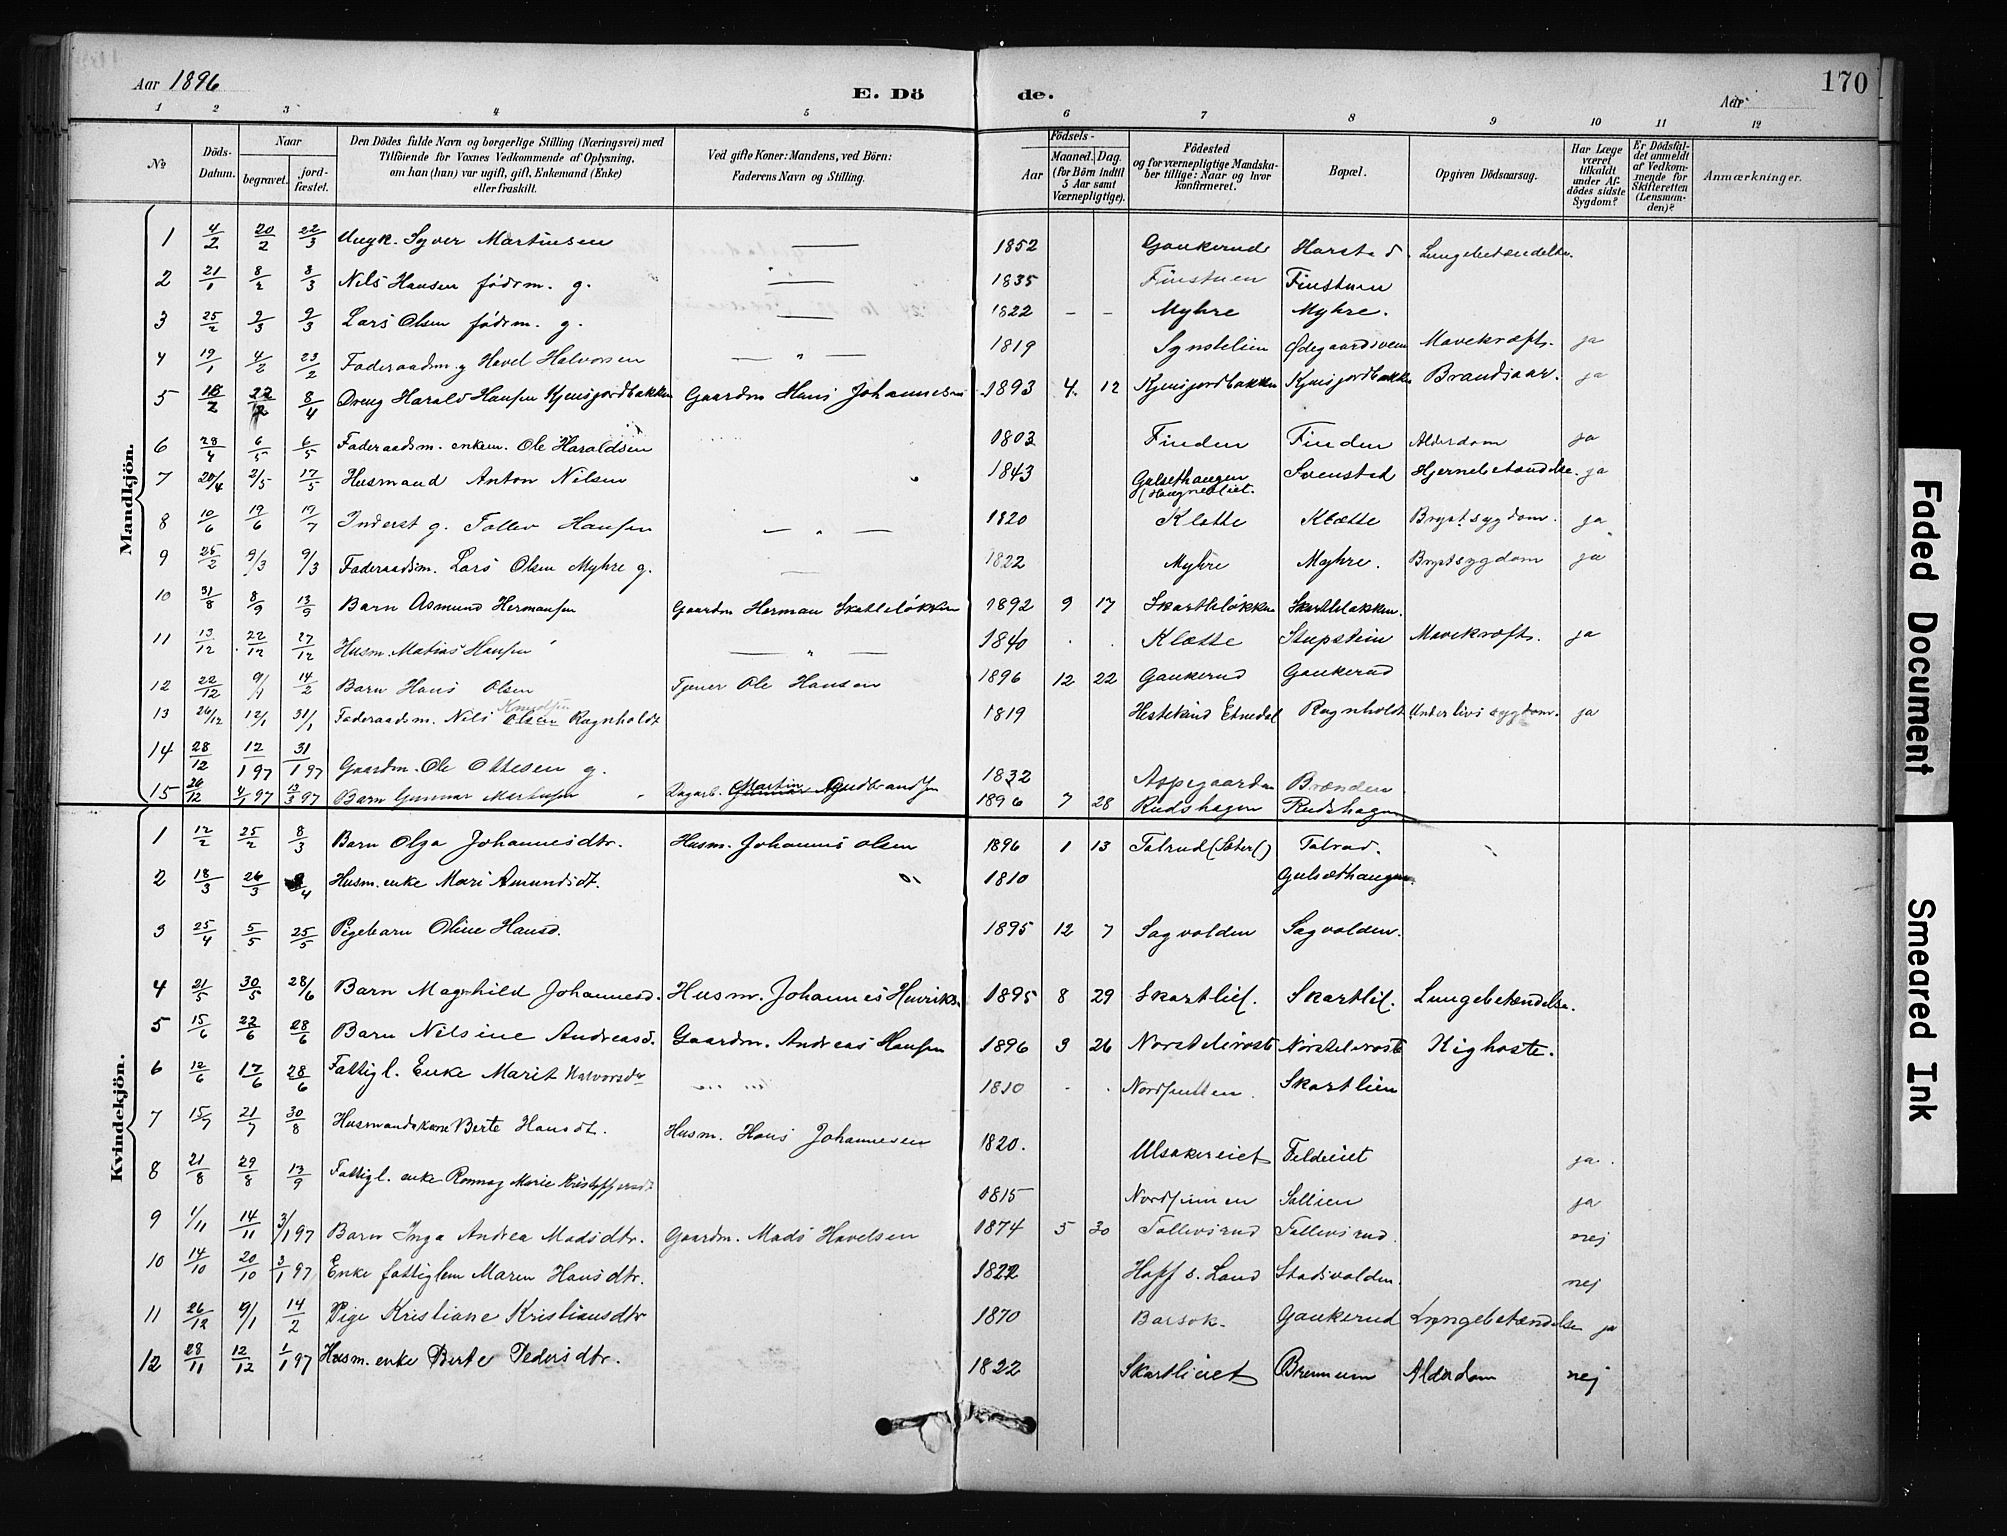 Aar 1896
E. Dö de.
Aar
170
1 2 3 4 5 6 7 8 9 10 11 12
No
Döds-Datum.
Naar
begravet.
jord-fæstet.
Den Dödes fulde Navn og borgerlige Stilling (Næringsvei) med
Tilföiende for Voxnes Vedkommende af Oplysning,
om han (hun) var ugift, gift, Enkemand (Enke)
eller fraskilt.
Ved gifte Koner: Mandens, ved Børn:
Faderens Navn og Stilling.
Födsels-
Aar
Maaned. Dag.
(for Börn indtil
5 Aar samt
Værnepligtige).
Födested
og for værnepligtige Mandska-
ber tillige: Naar og hvor
konfirmeret.
Bopæl.
Opgiven Dödsaarsag.
Har Læge
været
tilkaldt
under Af-
dödes sidste
Sygdom?
Er Dödsfal-
det anmeldt
af Vedkom-
mende for
Skifteretten
(Lensman-
den)?
Anmærkninger.
Mandkjön.
1 4/2 20/2 22/3 Ungk. Syver Martinsen 1852 Gaukerud Harstad Lungebetændelse.
2 21/1 8/2 8/3 Nils Hansen födsm. g. 1835 Finstuen Finstuen
3 25/2 9/3 9/3 Lars Olsen födsm. g. 1822 – – Myhre Myhre.
4 19/1 4/2 23/2 Faderaadsm. g Havel Halvorsen 1819 Synstelien Ødegaardsveen Mavekræft. ja
5 18/2 22/2 8/4 Dreng Harald Hansen Kjensjordbakken Gaardm Hans Johannesen 1893 4. 12 Kjensjordbakken Kjensjordbakken Brandsaar. ja
6 28/4 6/5 6/5 Faderaadsm. enkem. Ole Haraldsen 1803 Finden Finden Alderdom ja
7 20/4 2/5 17/5 Husmand Anton Nilsen 1843 Gulsethaugen Svenstad Hjernebetændelse. ja
8 10/6 19/6 17/7 Inderst g. Tollev Hansen 1820 Kløtte Klætte Brystsygdom. ja
9 25/2 9/3 9/3 Faderaadsm. Lars Olsen Myhre g. 1822 Myhre Myhre. Brystsygdom ja
10 31/8 8/9 13/9 Barn Asmund Hermansen Gaardm Herman Skartliløkken 1892 9 17 Skartliløkken Skartliløkken.
11 13/12 22/12 27/12 Husm. Matias Hansen 1840 Klætte Stupstein Mavekræft. ja
12 22/12 9/1 14/2 Barn Hans Olsen Tjener Ole Hansen 1896 12 22 Gaukerud Gaukerud
Knudsen
13 26/12 12/1 31/1 Faderaadsm. Nils Olsen Ragnholdt 1819 Hestekind Etnedal Ragnholdt Underlivssygdom. ja
14 28/12 12/1 97 31/1 97 Gaardm. Ole Ottesen g. 1832 Aspegaarden Brænden
15 26/12 4/1 97 13/3 97 Barn Gunnar Martinsen Dagarb. Martin Gudbrandsen 1896 7 28 Rudshagen Rudshagen
Kvindekjön.
1 12/2 25/2 8/3 Barn Olga Johannesdtr. Husm. Johannes Olsen 1896 1 13 Tolrud Tolrud.
2 18/3 26/3 /4 Husm. enke Mari Amundsdt. 1810 Gulsethaugen.
3 25/4 5/5 25/5 Pigebarn Oline Hansd. 1895 12 7 Sagvolden Sagvolden.
4 21/5 30/5 28/6 Barn Magnhild Johannesd. Husm. Johannes Henriks. 1895 8 29 Skartlie. Skartli. Lungebetændelse.
5 15/6 22/6 28/6 Barn Nilsine Andreasd. Gaardm. Andreas Hansen 1896 3 26 Norstelivoste Norstelivoste Kighoste.
6 12/6 17/6 28/6 Fattigl. Enke Marit Halvorsdtr 1810 Nordsinnen. Skartlien
7 15/7 21/7 30/8 Husmandskone Berte Hansdt. Husm. Hans Johannesen 1820. Ulsakereiet Feldeiet ja.
8 21/8 29/8 13/9 Fattigl. enke Ronnaug Marie Kristoffersdt 1815 Nordsinnen Sollien ja
9 1/11 14/11 3/1 97 Barn Inga Andrea Madsdtr. Gaardm. Mads Havelsen 1874 5 30 Tollevsrud Tollevsrud. nej
10 14/10 20/10 3/1 97 Enke fattiglem Maren Hansdtr. 1822 Hoff s. Land Stadsvolden. nej
11 26/12 9/1 14/2 Pige Kristiane Kristiansdtr 1870 Barsok. Gaukerud Lungebetændelse ja
12 28/11 12/12 1/1 97 Husm. enke Berte Pedersdtr. 1822 Skartlieiet Brennum Alderdom nej
Faded Document
Smeared Ink